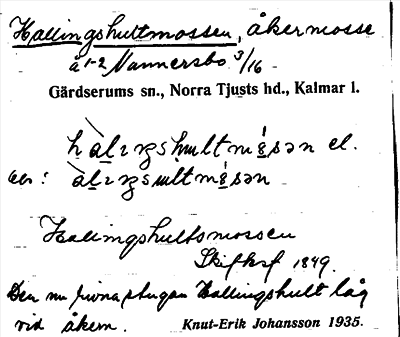 Hallingshultmossen, åkermosse
å 1-2 Mannersbo 3/16
Gärdserums sn., Norra Tjusts hd., Kalmar l.
hàlıŋshultmósən el.
àlıŋsultmósən
Hallingshultsmossen
Skifksf 1849.
Den nu rivna stugan Hallingshult låg
vid åkern.
Knut-Erik Johansson 1935.